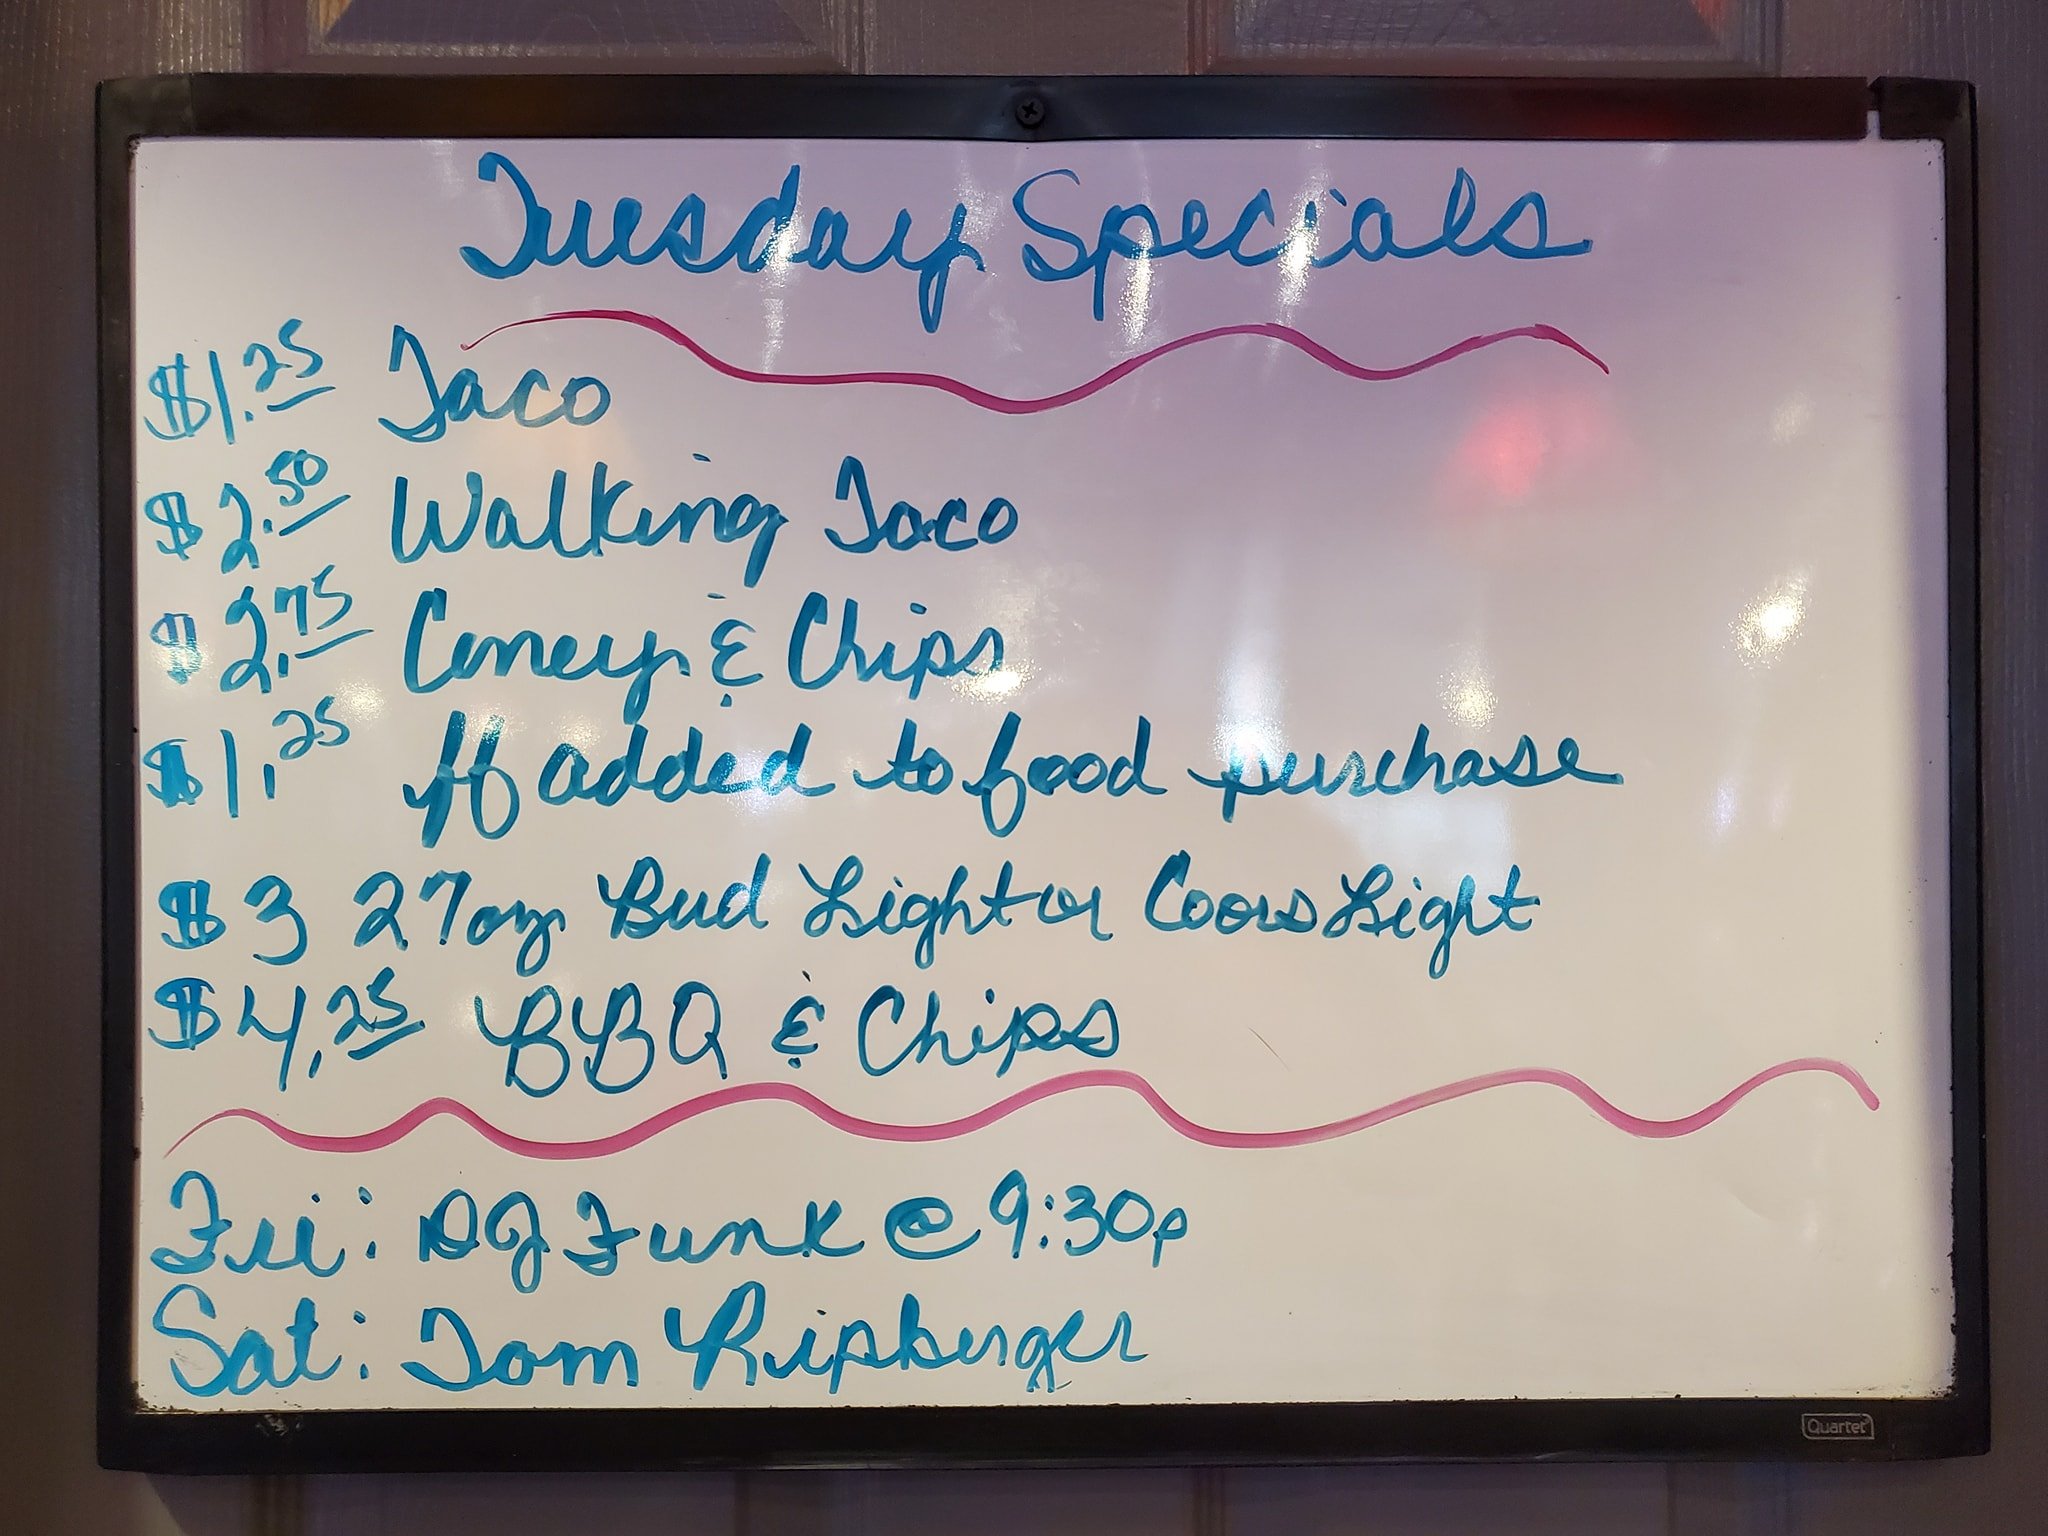 Tuesday Specials
$1.25 Taco
$2.50 Walking Taco
$2.75 Coney & Chips
$1.25 If added to food purchase
$3 27oz Bud Light or Coors Light
$4.25 BBQ & Chips
Fri: DJ Funk @ 9:30p
Sat: Tom Ripberger
Quartet